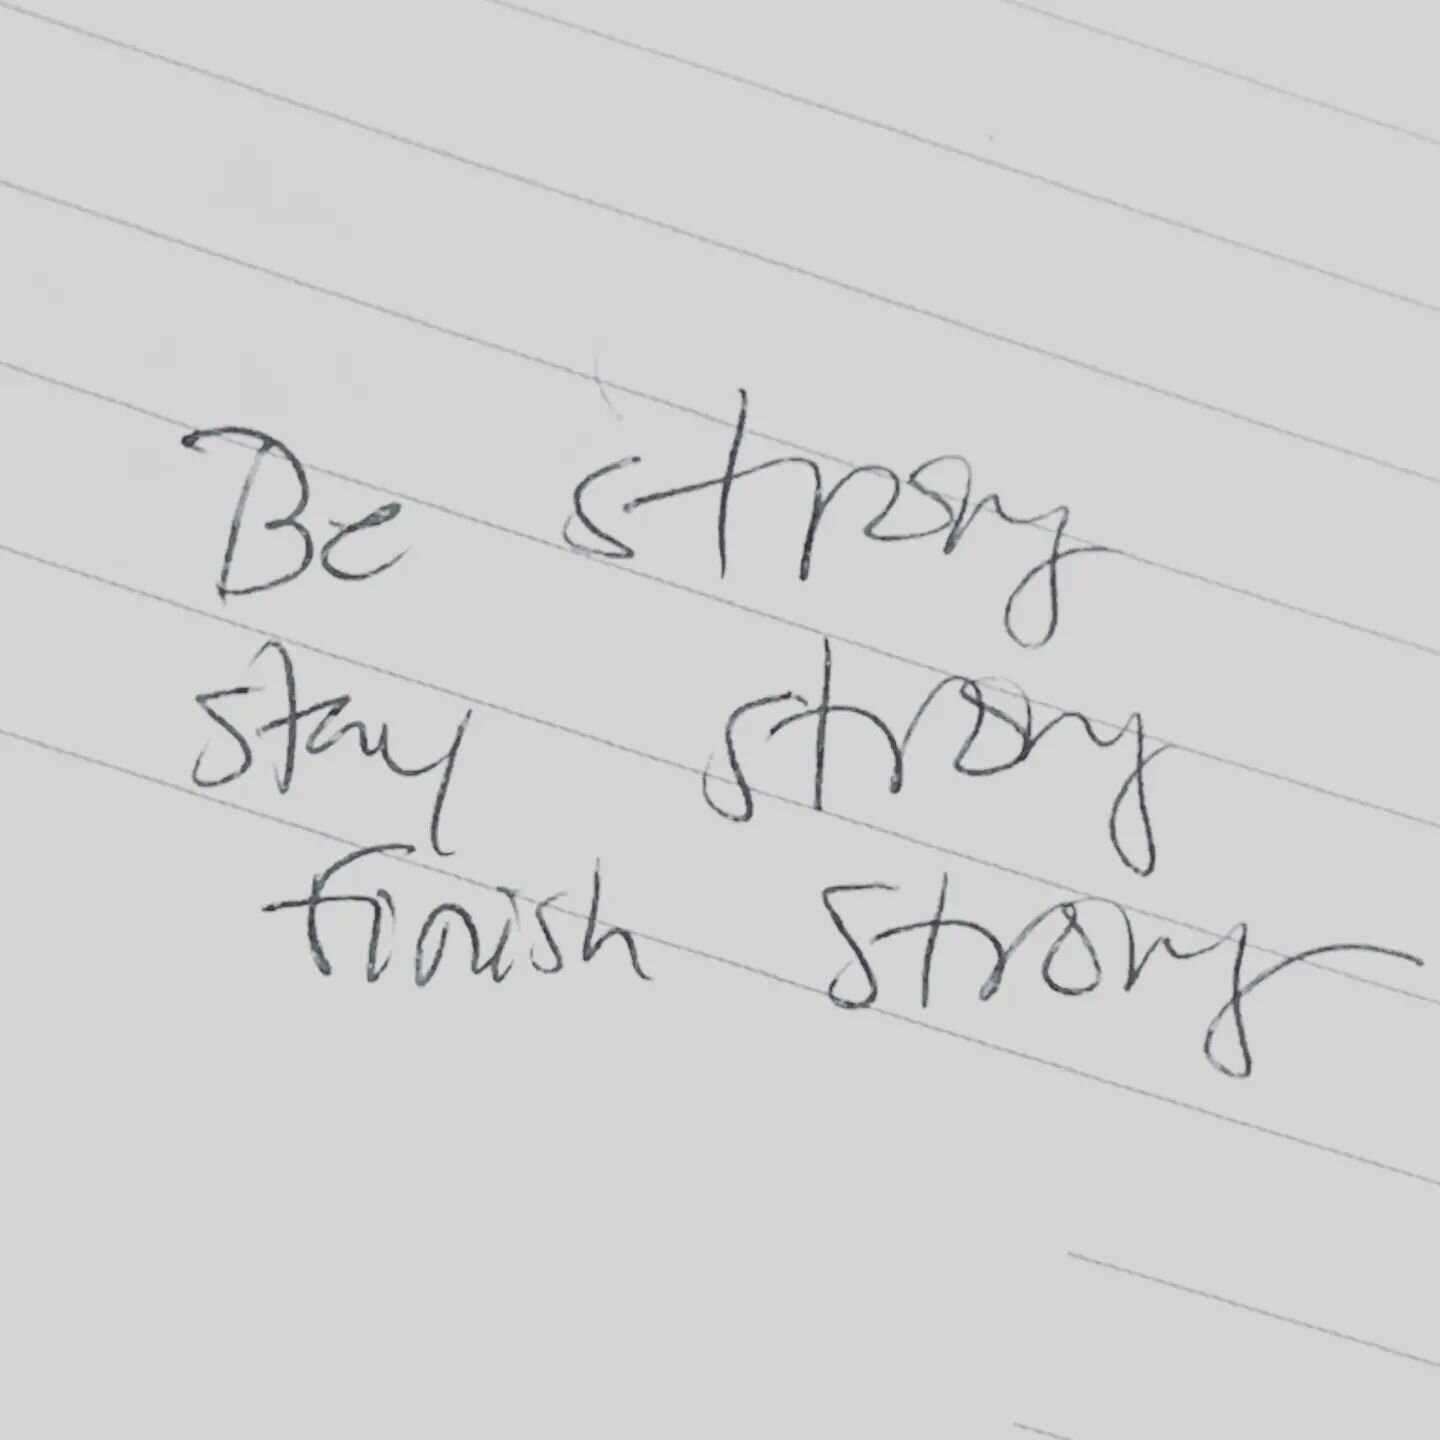 Be strong
stay strong
finish strong